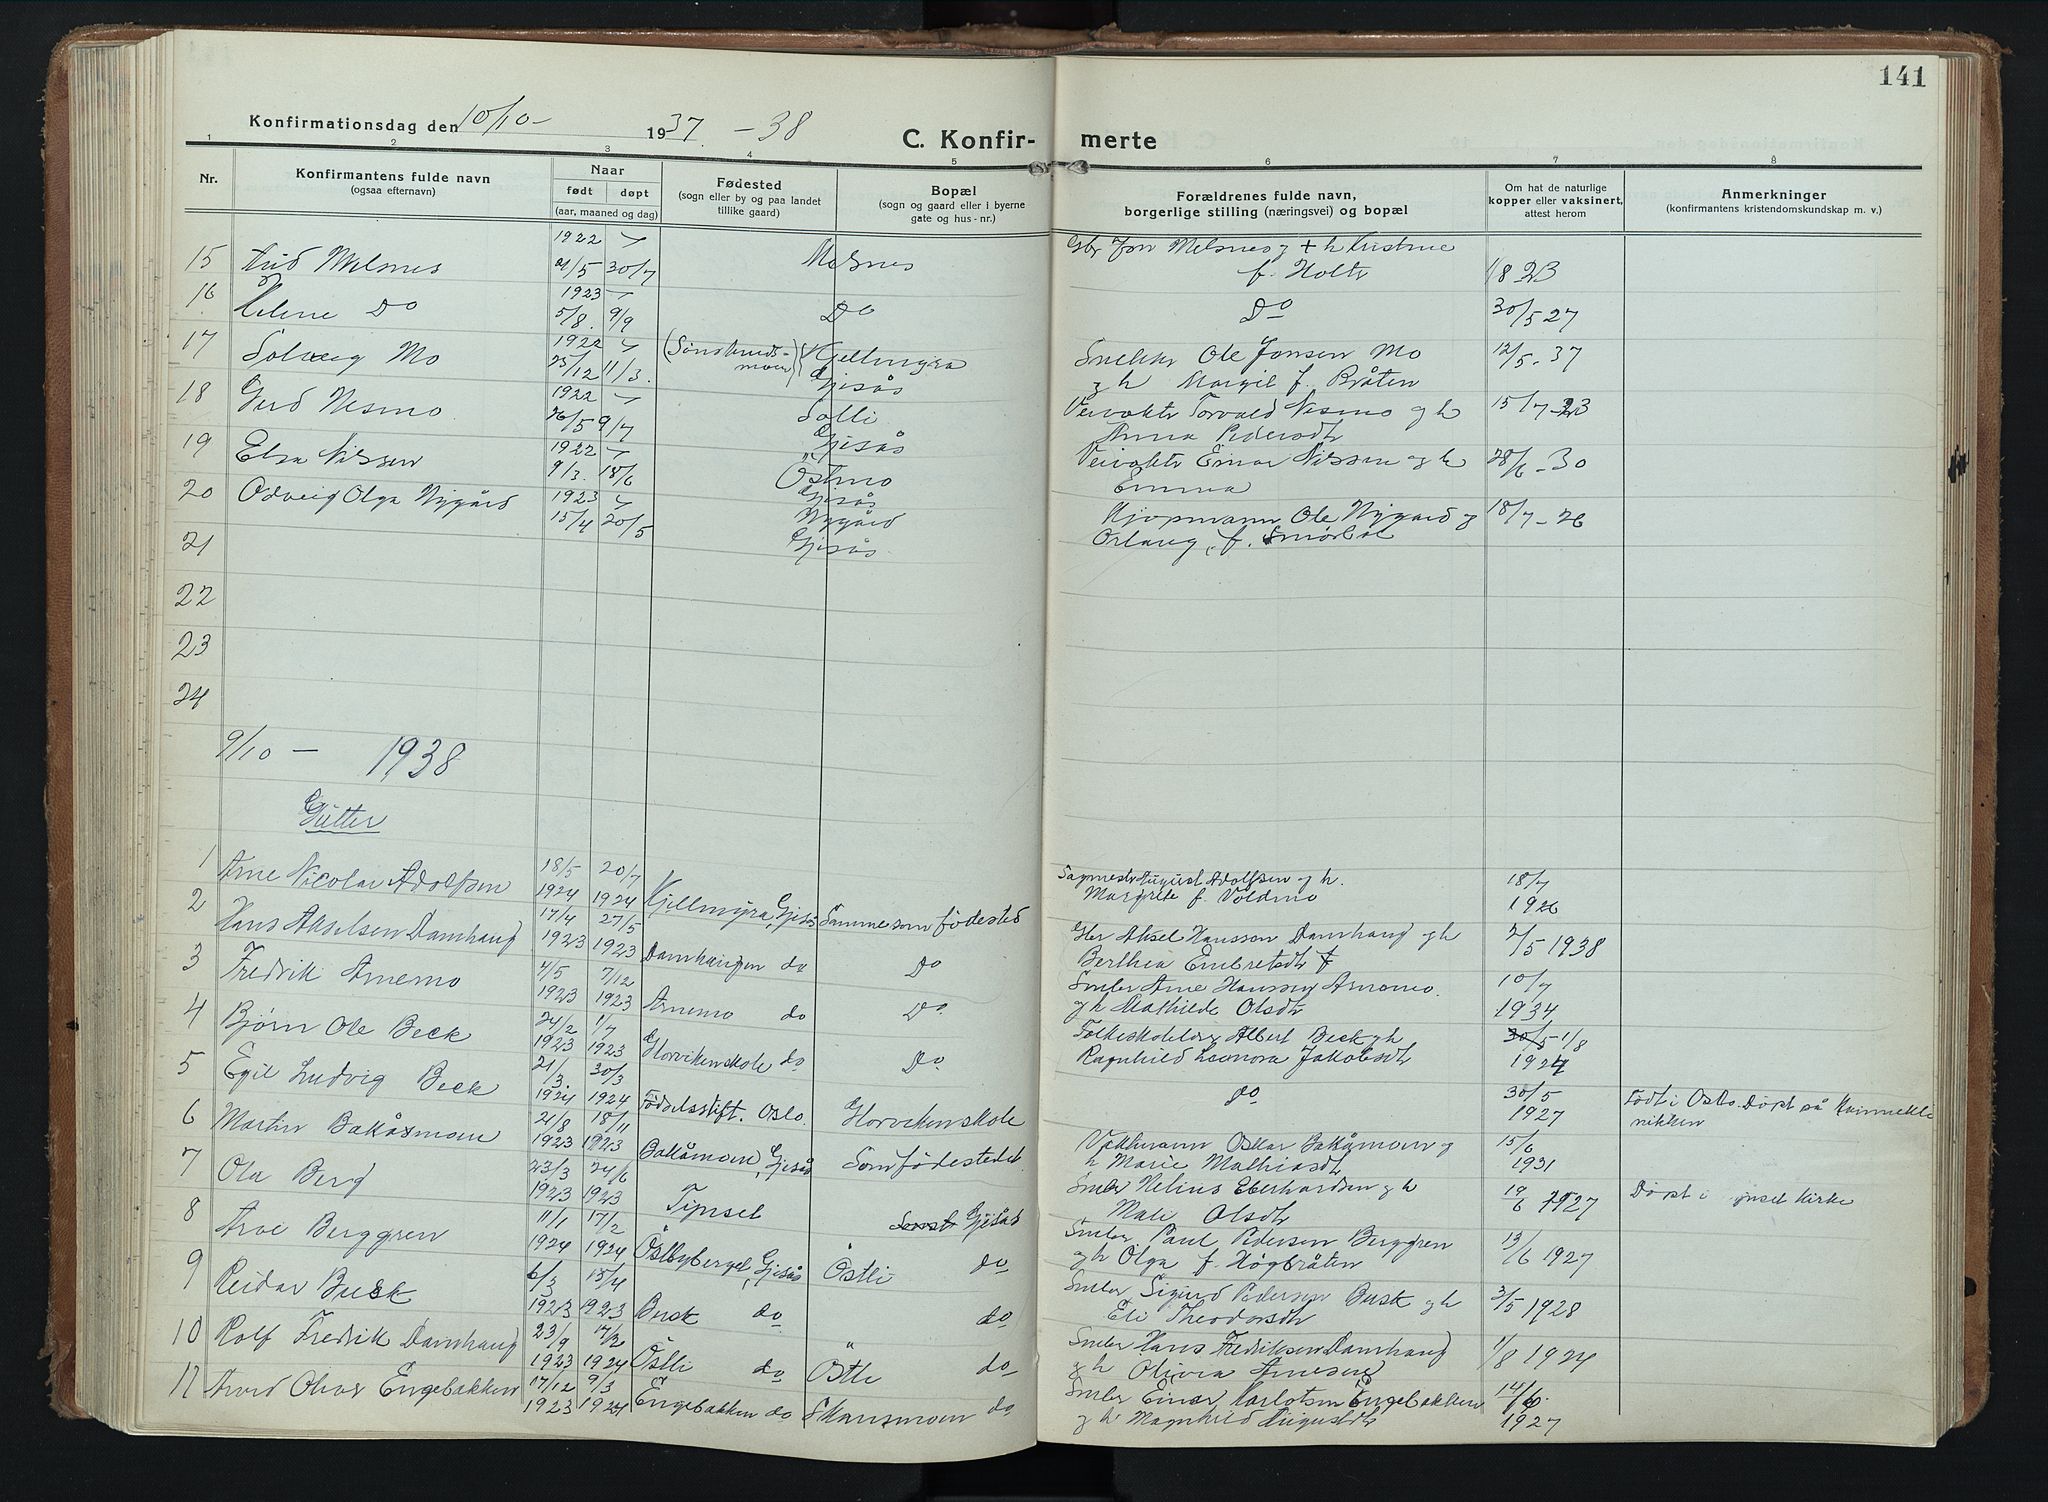 141
Konfirmationsdag den 10/10- 1937. - 38
C. Konfir- merte
1 2 3 4 5 6 7 8
Nr.
Konfirmantens fulde navn
(ogsaa efternavn)
Naar
født døpt
(aar, maaned og dag)
Fødested
(sogn eller by og paa landet
tillike gaard)
Bopæl
(sogn og gaard eller i byerne
gate og hus-nr.)
Forældrenes fulde navn,
borgerlige stilling (næringsvei) og bopæl
Om hat de naturlige
kopper eller vaksinert,
attest herom
Anmerkninger
(konfirmantens kristendomskundskap m. v.)
1922
15 Melsnes 30/7 Melsnes
Gbr Jon Melsnes og + h Kristine
f. Holt 1/8 23
1923
16 Helene Do 5/8. 9/9 Do Do 30/5 27
1922
17 Solveig Mo 25/12 11/3. Kjellmyra
Gjesås
Snekker Ole Jonsen Mo
og h Margit f. Bråten 12/5. 37
1922
18 Gerd Nesmo 26/5 9/7 Solli
Gjesås
Veivokter Torvald Nesmo og h
Anna Pedersdtr 15/7-23
1922
19 Elsa Nilssen 9/3. 18/6 Østmo
Gjesås
Veivokter Einar Nilssen og h
Emma 28/6-30
1923
20 Odveig Olga Nygård 15/4 20/5 Nygård
Gjesås
Kjøpmann Ole Nygård og
f. 18/7-26
21
22
23
24
9/10 - 1938
Gutter
1 Arne Nicolai Adolfsen 18/5 1924 20/7 1924 Kjellmyra, Gjesås Samme som fødested
August Adolfsen og h.
Margrete f. Voldmo 18/7 1926
2 Hans Akselsen Damhaug 17/4 1923 27/5 1923 Damhaugen do Do
Aksel Hanssen Damhaug og h
Berthea Embretsdtr 7/5 1938
3 Fredrik Arnemo 4/5 1923 7/12 1923 Arnemo do Do
Småbr Arne Hanssen Arnemo.
og h Mathilde Olsdtr 10/7 1934
4 Bjørn Ole Beck 24/2 1923 1/7 1923 do Do
Albert Beck og h
Ragnhild Leonora Jakobsdtr 30/5-1/8 1924
5 Egil Ludvig Beck 21/3. 1924 30/3 1924 Fødselsstift. Oslo. Do 30/5 1927
Født i Oslo. Døpt på Kvinnekli
nikken
6 Martin Bakåsmoen 21/8 1923 18/11 1923 Bakåmoen, Gjesås Som fødestedet
Oskar Bakåmoen og
h Marie Mathiasdtr 15/6 1931
7 Ola Berg 23/3 1923 24/6 1923 Tynset Gjesås
Småbr Helius Eberhardsen og h
Mali Olsdtr 19/6 1927
Døpt i Tynset Kirke
8 Arve Berggren 11/1 1924 17/2 1924 Østbyberget, Gjesås Østli do
Småbr Paul Pedersen Berggren
og h Olga f. Høgbråten 13/6 1927
9 Reidar Busk 6/3 1923 15/4 1923 Busk do " do
Småbr Sigurd Pedersen Busk og h
Eli Theodorsdtr 3/5 1928
10 Rolf Fredrik Damhaug 23/9 1923 17/2 1924 Østli do Østli do
Småbr Hans Fredriksen Damhaug
og h Olivia 1/8 1924
11 Arvid Olvar Engebakken 17/12 1923 9/3 1924 Engebakken do Skansmoen do
Småbr Einar Karlotsen Engebakken
og h Magnhild Augustdtr 14/6. 1927